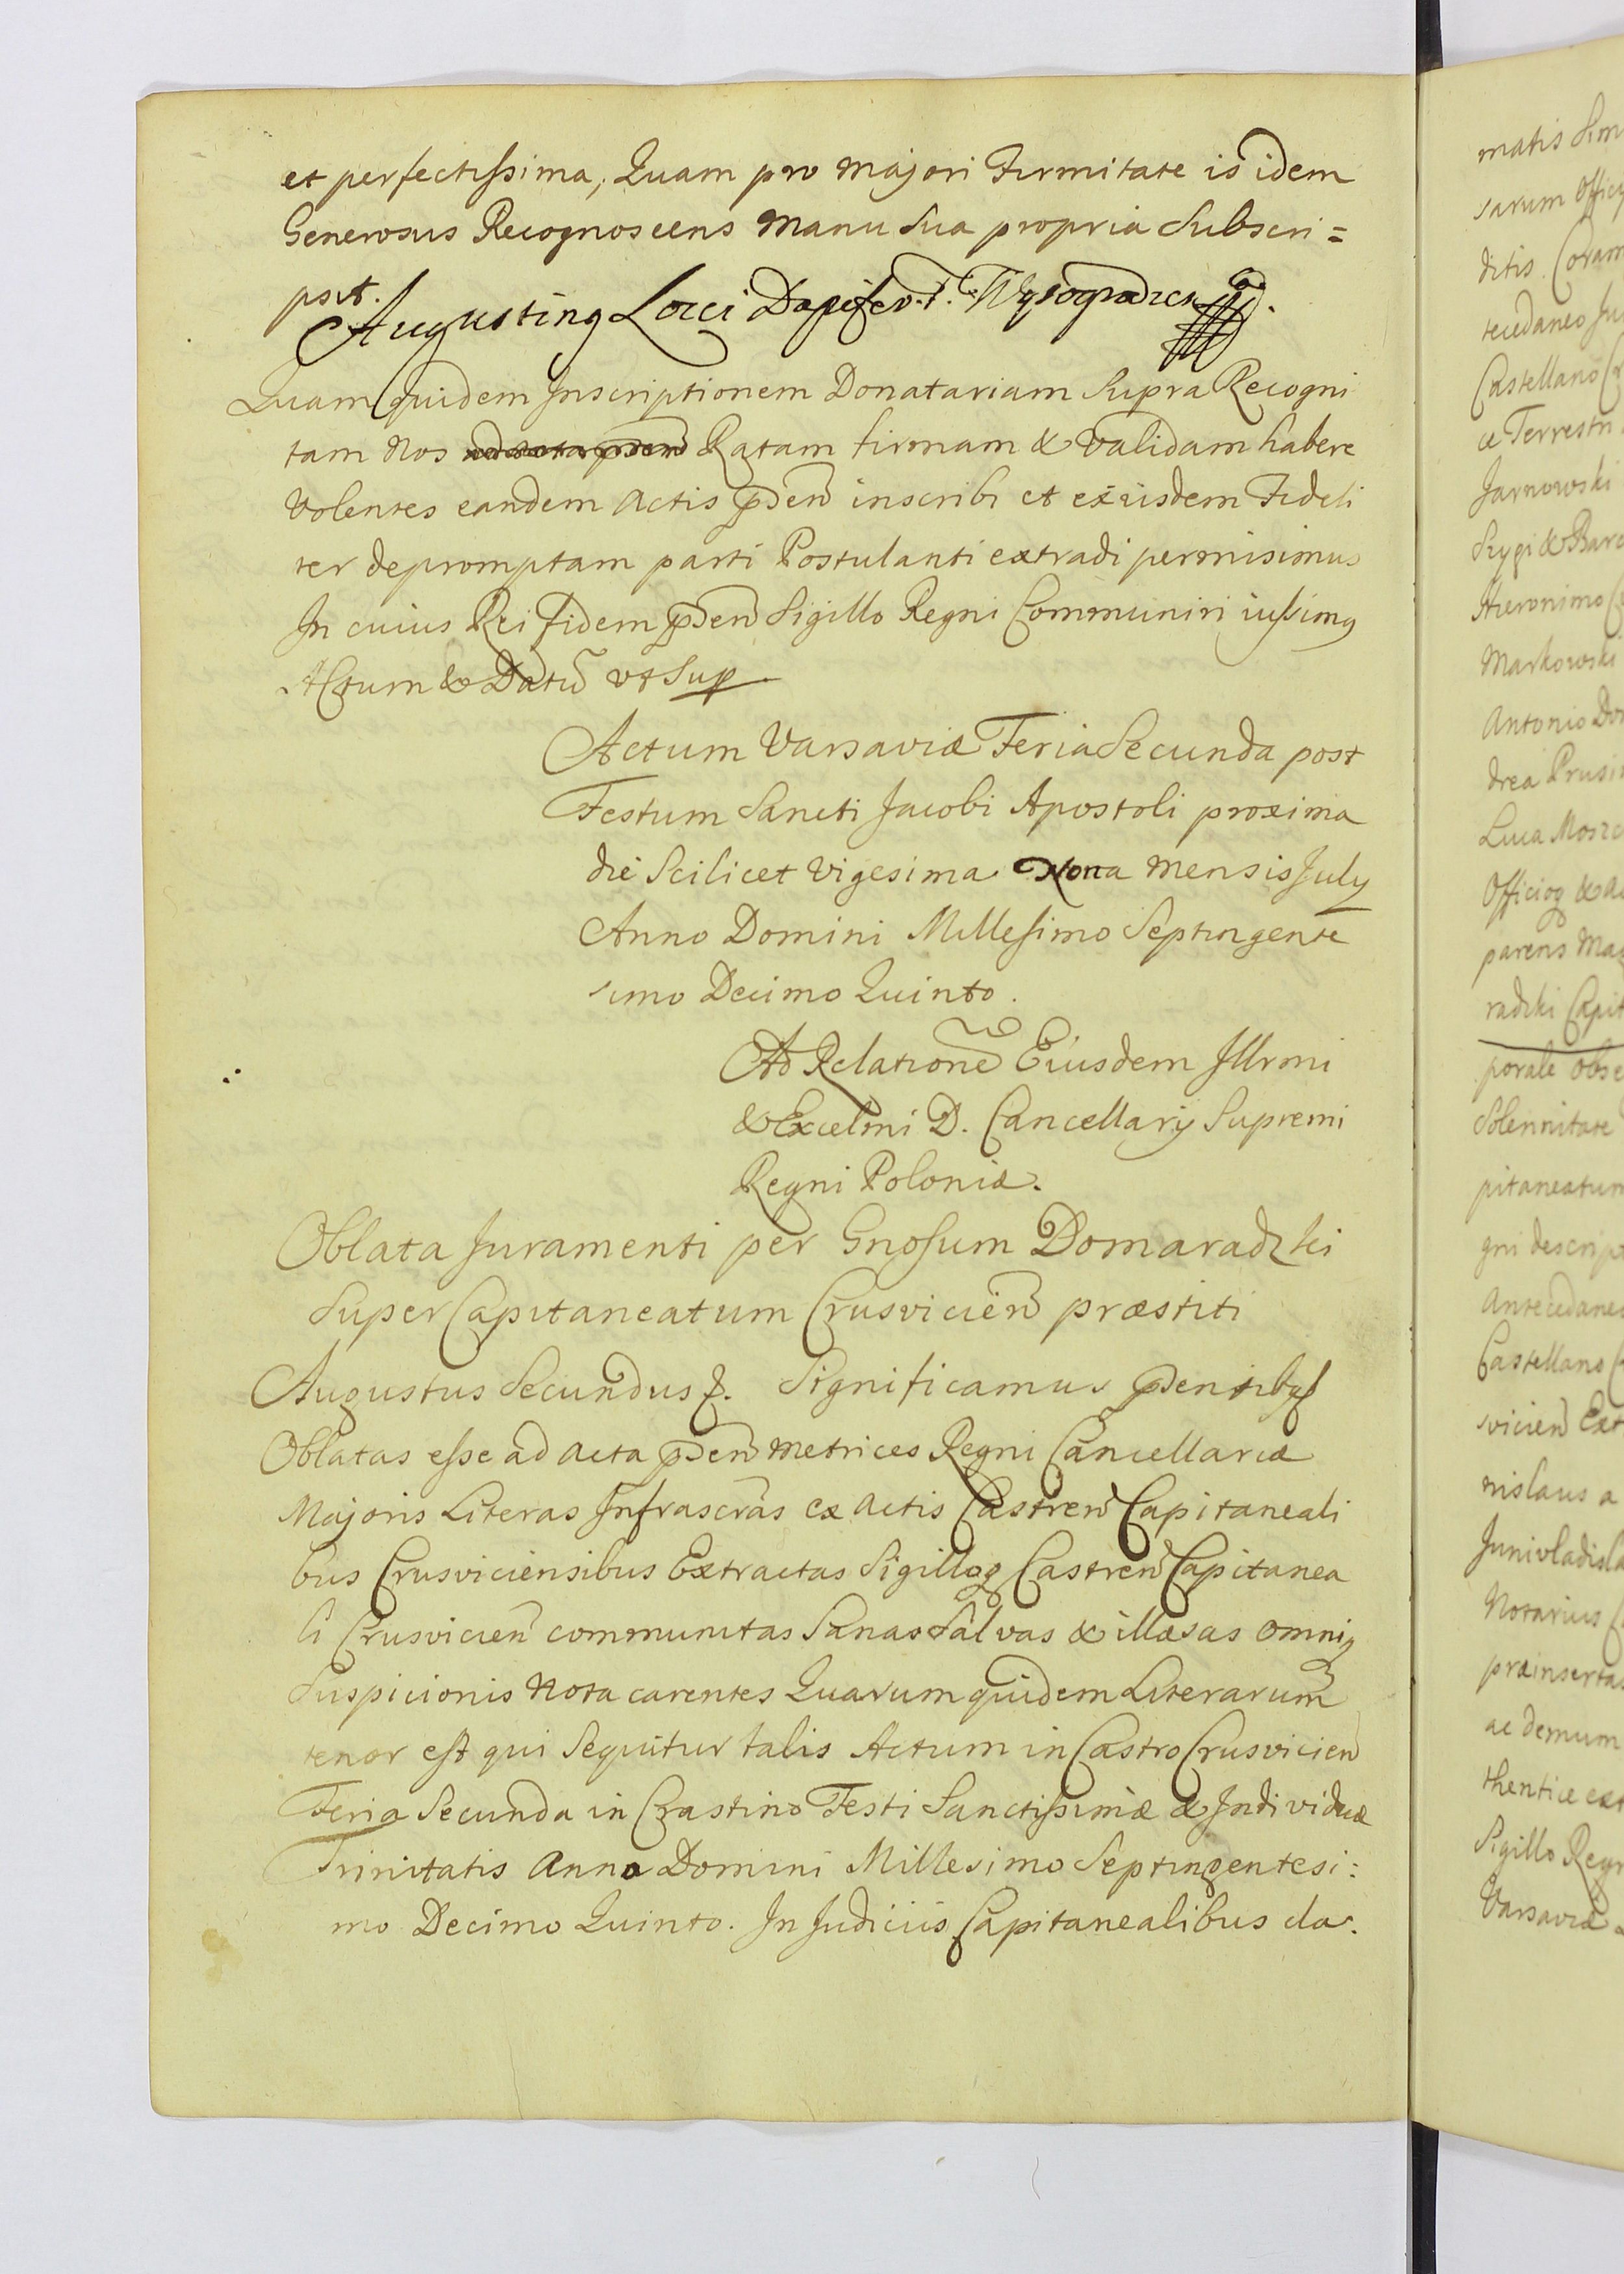 et perfectissima, Quam pro Majori Firmitate is idem
Generosus Recognoscens Manu Sua propria Subscri=
psit.
Augustinq Locci Dapifer T. Wysogrodzen
Quam quidem Inscriptionem Donatariam Supra Recogni
tam Nos Ratam firmam & Validam habere
Volentes eandem Actis pñden inscribi et ex iisdem Fideli
ter depromptam parti Postulanti extradi permisimus
In cuius Rei fidem pñden Sigillo Regni Communiri iussimq
Actum & Datũ vt Sup
Actum Varsaviæ Feria Secunda post
Festum Sancti Jacobi Apostoli proxima
die Scilicet Vigesima Nona Mensis July
Anno Domini Millesimo Septingente
simo Decimo Quinto.
Ad Relationẽ Eiusdem Illrmi
& Excelmi D. Cancellarij Supremi
Regni Poloniæ.
Oblata Juramenti per Gnosum Domaradzki
Super Capitaneatum Crusvicien præstiti
Augustus Secundus &. Significamus
Oblatas esse ad Acta pñden Metrices Regni Cancellariæ
Majoris Literas Infrascras ex Actis Castren Capitaneali
bus Crusviciensibus Extractas Sigilloq Castren Capitanea
li Crusvicien communitas Sanas Salvas & illæsas omniq
Suspicionis Nota carentes Quarum quidem Literarum
tenor est qui Sequitur talis Actum in Castro Crusvicien
Feria Secunda in Crastino Festi Sanctissimæ & Individuæ
Trinitatis Anno Domini Millesimo Septingentesi:
mo Decimo Quinto. In Judiciis Capitanealibus cla.
matis Sim
sarum Officy
ditis. Coram
tecedaneo Ju
Castellano
æ Terrestri
Jarnowski
Szygi & Barc
Hieronimo
Markowski
Antonio Dom
drea Prusi
Luca Mosz
Officioq & A
parens Mag
radzki Capit
porale obse
Solennitate
pitaneatum
gni descrip
Antecedaneo
Castellano
svicien Ext
nislaus a
Junivladisla
Notarius
præinsertas
ac demum
thentice ext
Sigillo Regn
Varsaviæ